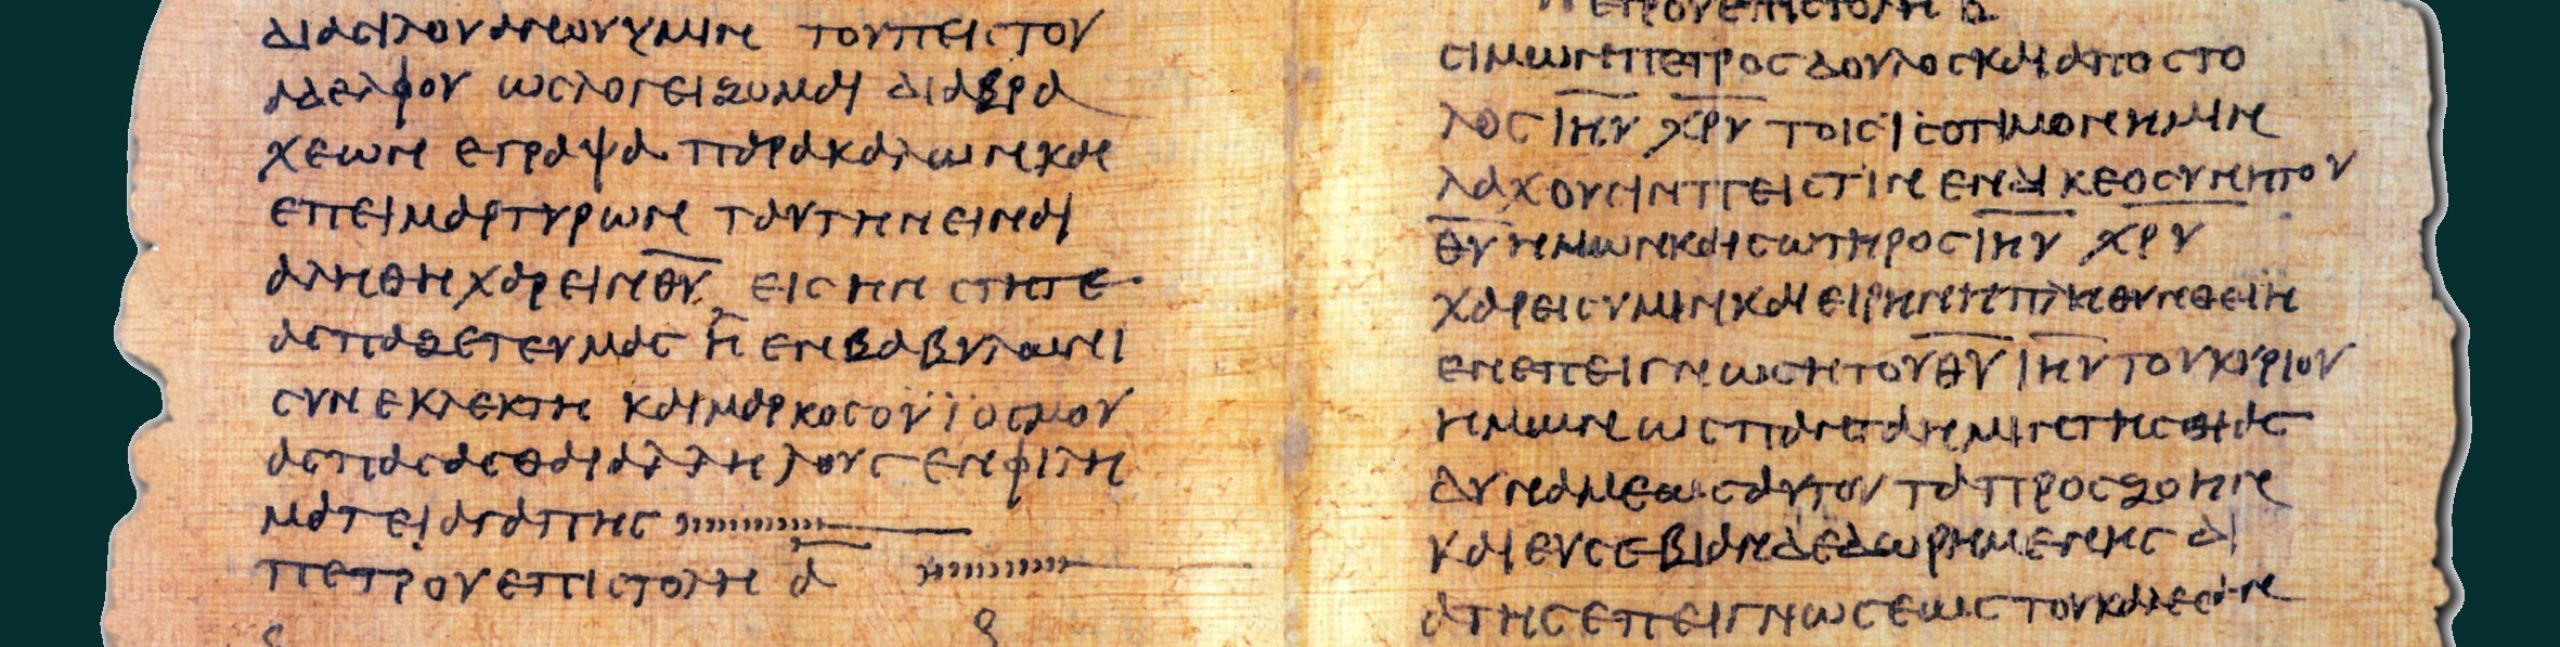 διασιλουανουυμιν τουπειστου
αδελφου ωσλογειζομαι διαβρα
χεων εγραψα παρακαλωνκαι
επειμαρτυρων ταυτηνειναι
αληθηχαρεινθ̅υ̅ εισηνστητε
ασπαζετευμας η ενβαβυλωνι
συνεκλεκτη καιμαρκοσουϊοσμου
ασπασασθαιαλληλουσενφιλη
ματειαγαπης
πετρουεπιστολη α̅
πετρουεπιστολη β̅
σιμωνπετροσδουλοσκαιαποστο
λοσι̅η̅υ̅ χ̅ρ̅υ̅ τοισϊσοτιμονημιν
λαχουσινπειστινενδικεοσυνητου
θ̅υ̅ημωνκαισωτηροσι̅η̅υ̅ χ̅ρ̅υ̅
χαρεισυμινκαιειρηνηπληθυνθειη
ενεπειγνωσητουθ̅υ̅ι̅η̅υ̅τουκυριου
ημωνωσπανταημιντησθιας
δυναμεωσαυτουταπροσζοην
καιευσεβιανδεδωρημενησδι
ατησεπειγνωσεωστουκαλεσαν